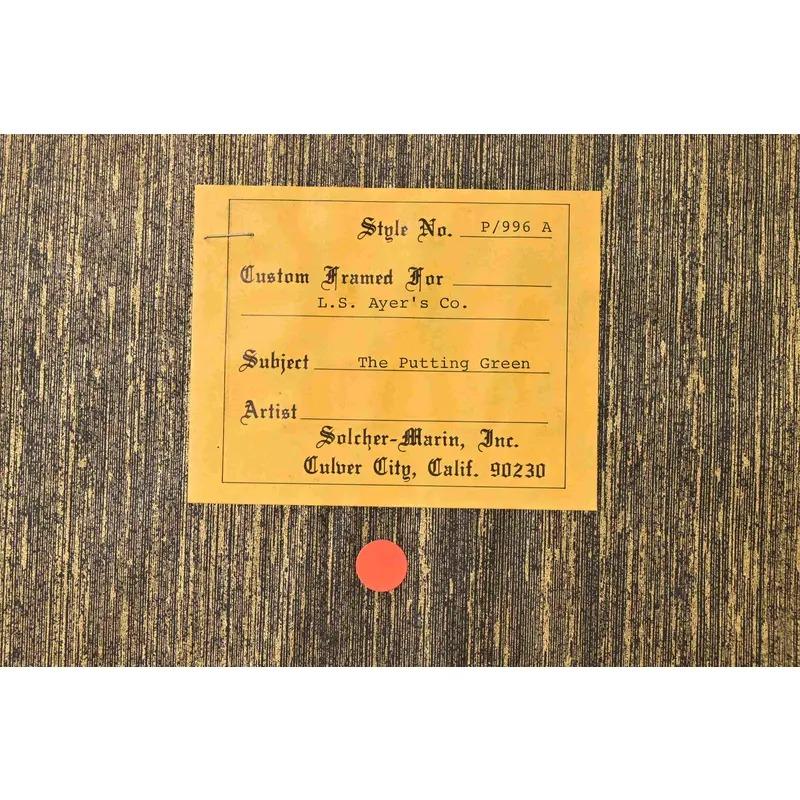 Style No. P/996 A
Custom Framed For
L.S. Ayer's Co.
Subject The Putting Green
Artist
Solcher-Marin, Inc.
Culver City, Calif. 90230